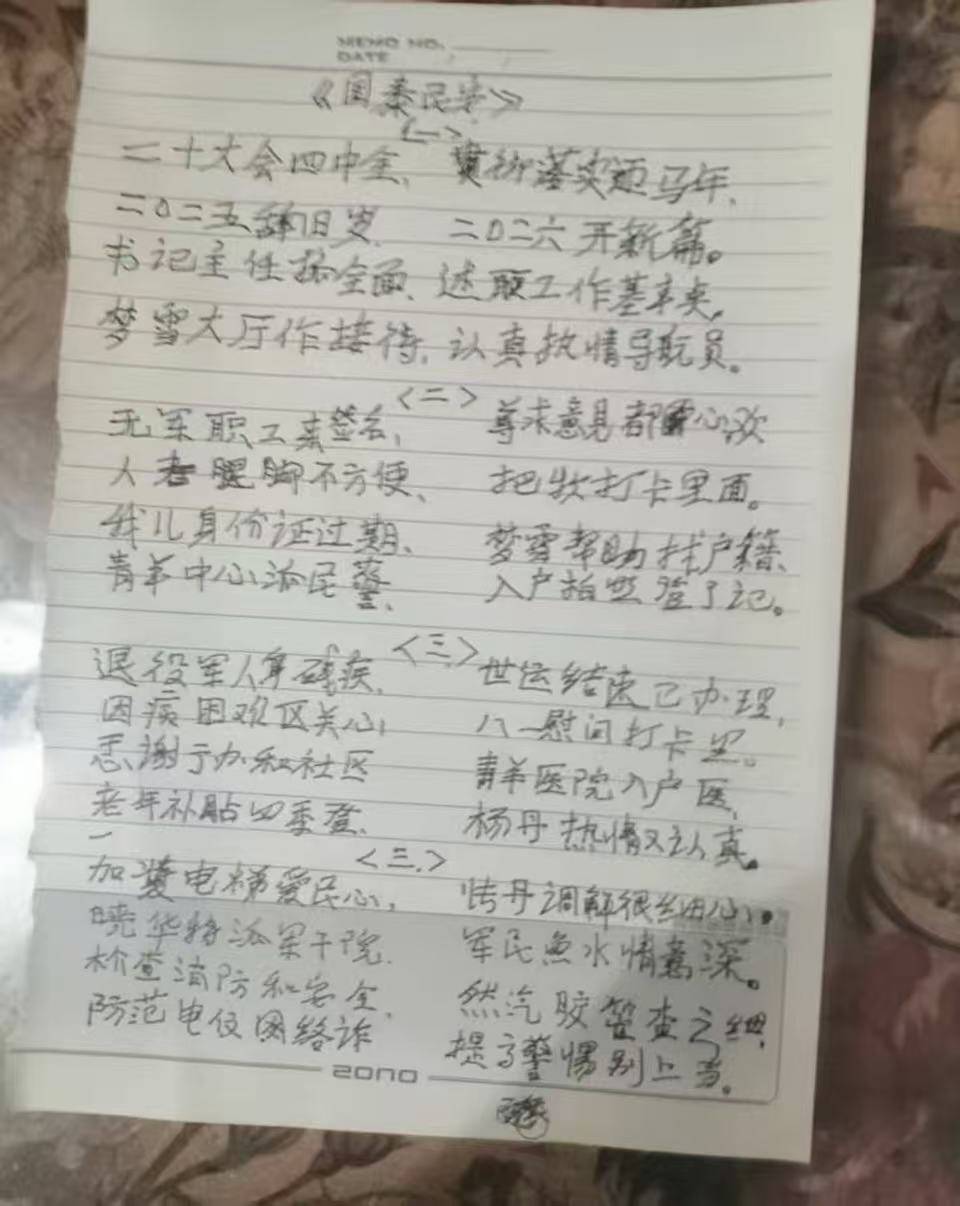 MEMO NO.
DATE
《国泰民安》
<一>
二十大会四中全、贯彻落实迎马年,
二〇二五辞旧岁. 二〇二六开新篇。
书记主任抓全面、述职工作基本夹,
梦雪大厅作接待,认真执情导航员。
<二>
无军职工来签名, 尊求意见都心欢
人老腿脚不方便、 把牧打卡里面。
我儿身份证过期、 梦雪帮助找户籍、
青羊中心派民警, 入户拍照登了记。
<三>
退役军人身残疾, 世运结束已办理,
因病困难区关心, 八一慰问打卡里。
感谢于办和社区 青羊医院入户医,
老年补贴四季登、 杨丹热情又认真。
<三>
加装电梯爱民心, 杨丹调解很细心。
晓华特派军干院. 军民鱼水情意深。
检查消防和安全, 然汽胶管查之细,
防范电仪网络诈 提高警惕别上当。
2ono